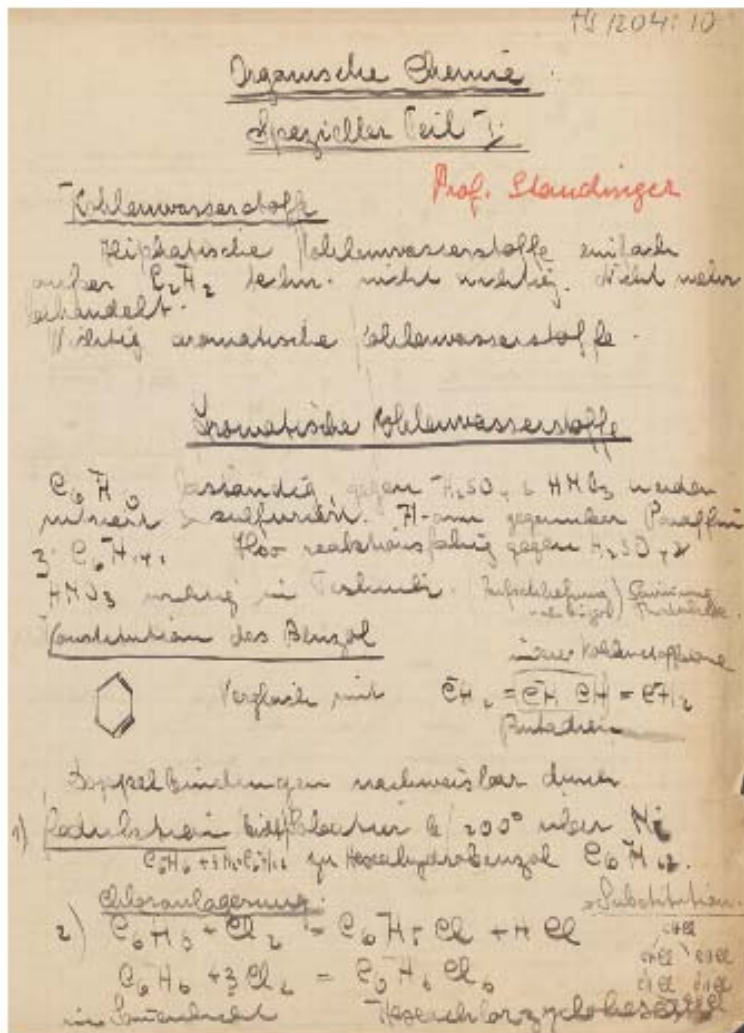 Hs 1204:10
Organische Chemie.
Spezieller Teil I.
Prof. Staudinger
Kohlenwasserstoffe
Aliphatische Kohlenwasserstoffe einfach
außer C2H2 techn. nicht wichtig. Nicht mehr
behandelt.
Wichtig aromatische Kohlenwasserstoffe.
Aromatische Kohlenwasserstoffe
C6H6 beständig gegen H2SO4 & HNO3 werden
nitriert & sulfuriert. gegenüber Paraffin
C6H14. reaktionsfähig gegen H2SO4 &
HNO3 wichtig in Technik.
Konstitution des Benzol
Vergleich mit CH2 = CH CH = CH2
Butadien
Doppelbindungen nachweisbar durch
1) Reduktion 200° über Ni
zu Hexahydrobenzol C6H12.
Chloranlagerung: Substitution.
2) C6H6 + Cl2 = C6H5Cl + HCl
C6H6 + 3Cl2 = C6H6Cl6
im Sonnenlicht Hexachlorzyclohexan